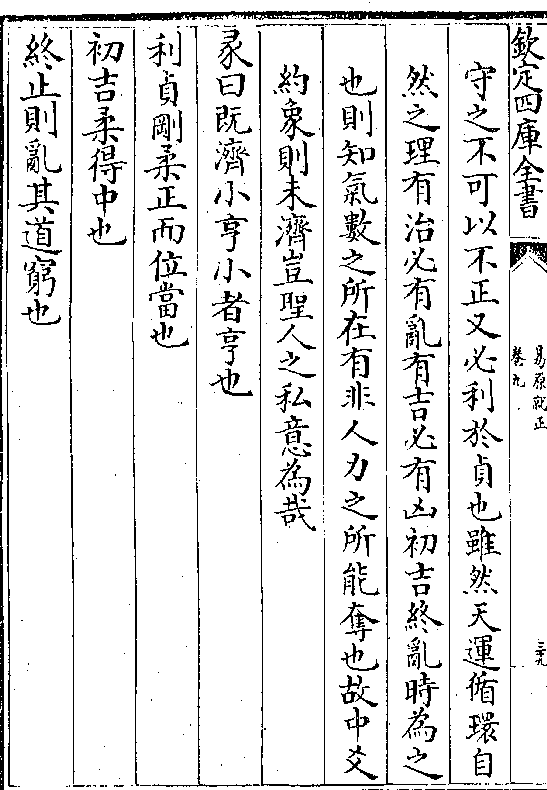 欽定四庫全書
易原就正
卷九
三十九
守之不可以不正又必利於貞也雖然天運循環自
然之理有治必有亂有吉必有凶初吉終亂時為之
也則知氣數之所在有非人力之所能奪也故中爻
約象則未濟豈聖人之私意為哉
彖曰既濟小亨小者亨也
利貞剛柔正而位當也
初吉柔得中也
終止則亂其道窮也